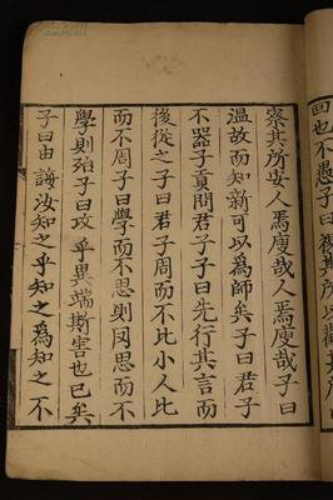 回也不愚子曰視其所以觀其所
察其所安人焉廋哉人焉廋哉子曰
温故而知新可以爲師矣子曰君子
不器子貢問君子子曰先行其言而
後從之子曰君子周而不比小人比
而不周子曰學而不思則罔思而不
學則殆子曰攻乎異端斯害也已矣
子曰由誨汝知之乎知之爲知之不